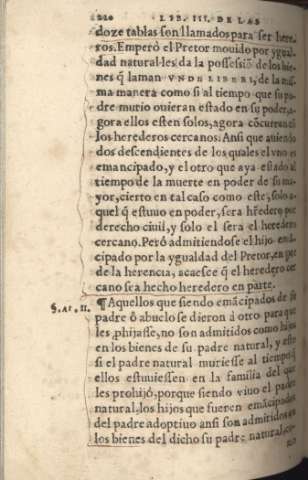 220 LIB. III. DE LAS
doze tablas son llamados para ser here-
ros. Emperò el Pretor mouido por ygual
dad natural les da la possessiō de los bie-
nes q̄ laman VNDE LIBERI, de la mis-
ma manera como si al tiempo que su pa-
dre murio ouieran estado en su poder, a-
gora ellos esten solos, agora cōcurran cō
los herederos cercanos. Ansi que auiendo
dos descendientes de los quales el vno es
emancipado, y el otro que aya estado al
tiempo de la muerte en poder de su ma-
yor, cierto en tal caso como este, solo a-
quel q̄ estuuo en poder, sera hředero por
derecho ciuil, y solo el sera el heredero
cercano. Però admitiendose el hijo emā-
cipado por la ygualdad del Pretor, en parte
de la herencia, acaesce q̄ el heredero cer-
cano sea hecho heredero en parte.
§. At, ii. ¶ Aquellos que siendo emācipados de su
padre ò abuelo se dieron à otro para que
les phijasse, no son admitidos como hijos
en los bienes de su padre natural, y esto
si el padre natural muriesse al tiempo q̄
ellos estuuiessen en la familia del que
les prohijó, porque siendo viuo el padre
natural, los hijos que fueren emācipados
del padre adoptiuo ansi son admitidos en
los bienes del dicho su padre natural, co-